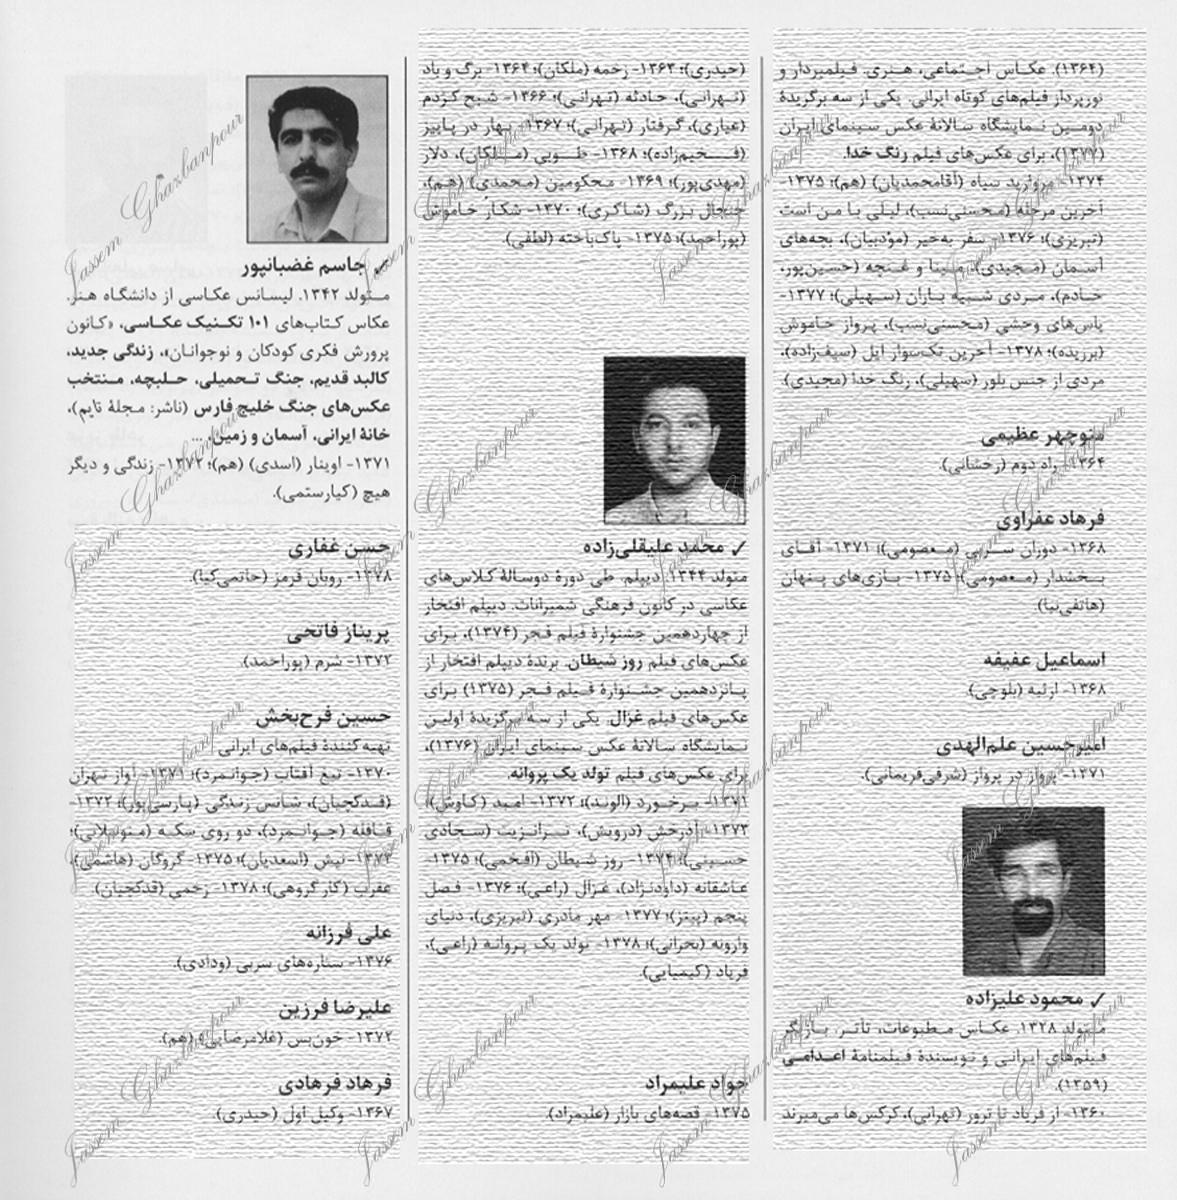 (۱۳۶۴). عکاس اجتماعی، هنری. فیلمبردار و
نورپرداز فیلم‌های کوتاه ایرانی. یکی از سه برگزیدهٔ
دومین نمایشگاه سالانهٔ عکس سینمای ایران
(۱۳۷۷)، برای عکس‌های فیلم رنگ خدا.
۱۳۷۴- مروارید سیاه (آقامحمدیان) (هم)؛ ۱۳۷۵-
آخرین مرحله (محسنی‌نسب)، لیلی با من است
(تبریزی)؛ ۱۳۷۶- سفر به‌خیر (مؤدبیان)، بچه‌های
آسمان (مجیدی)، مینا و غنچه (حسین‌پور،
خادم)، مردی شبیه باران (سهیلی)؛ ۱۳۷۷-
یاس‌های وحشی (محسنی‌نسب)، پرواز خاموش
(برزیده)؛ ۱۳۷۸- آخرین تک‌سوار ایل (سیف‌زاده)،
مردی از جنس بلور (سهیلی)، رنگ خدا (مجیدی).
منوچهر عظیمی
۱۳۶۴- راه دوم (رخشانی).
فرهاد عفراوی
۱۳۶۸- دوران سربی (معصومی)؛ ۱۳۷۱- آقای
بخشدار (معصومی)؛ ۱۳۷۵- بازی‌های پنهان
(هاتفی‌نیا)
اسماعیل عفیفه
۱۳۶۸- ارثیه (بلوچی).
امیرحسین علم‌الهدی
۱۳۷۱- پرواز در پرواز (شرفی‌فریمانی).
✓ محمود علیزاده
متولد ۱۳۲۸. عکاس مطبوعات، تأتر. بازیگر
فیلم‌های ایرانی و نویسندهٔ فیلمنامهٔ اعدامی
(۱۳۵۹).
۱۳۶۰- از فریاد تا ترور (تهرانی)، کرکس‌ها می‌میرند
(حیدری)؛ ۱۳۶۳- زخمه (ملکان)؛ ۱۳۶۴- برگ و باد
(تهرانی)، حادثه (تهرانی)؛ ۱۳۶۶- شبح کژدم
(عیاری)، گرفتار (تهرانی)؛ ۱۳۶۷- بهار در پاییز
(فخیم‌زاده)؛ ۱۳۶۸- طوبی (ملکان)، دلار
(مهدی‌پور)؛ ۱۳۶۹- محکومین (محمدی) (هم)،
جنجال بزرگ (شاکری)؛ ۱۳۷۰- شکار خاموش
(پوراحمد)؛ ۱۳۷۵- پاک‌باخته (لطفی).
✓ محمد علیقلی‌زاده
متولد ۱۳۴۴. دیپلم. طی دورهٔ دوسالهٔ کلاس‌های
عکاسی در کانون فرهنگی شمیرانات. دیپلم افتخار
از چهاردهمین جشنوارهٔ فیلم فجر (۱۳۷۴)، برای
عکس‌های فیلم روز شیطان. برندهٔ دیپلم افتخار از
پانزدهمین جشنوارهٔ فیلم فجر (۱۳۷۵) برای
عکس‌های فیلم غزال. یکی از سه برگزیدهٔ اولین
نمایشگاه سالانهٔ عکس سینمای ایران (۱۳۷۶)،
برای عکس‌های فیلم تولد یک پروانه.
۱۳۷۱- برخورد (الوند)؛ ۱۳۷۲- امید (کاوش)؛
۱۳۷۳- آذرخش (درویش)، ترانزیت (سجادی
حسینی)؛ ۱۳۷۴- روز شیطان (افخمی)؛ ۱۳۷۵-
عاشقانه (داودنژاد)، غزال (راعی)؛ ۱۳۷۶- فصل
پنجم (پیتز)؛ ۱۳۷۷- مهر مادری (تبریزی)، دنیای
وارونه (بحرانی)؛ ۱۳۷۸- تولد یک پروانه (راعی)،
فریاد (کیمیایی).
جواد علیمراد
۱۳۷۵- قصه‌های بازار (علیمراد).
✓ جاسم غضبانپور
متولد ۱۳۴۲. لیسانس عکاسی از دانشگاه هنر.
عکاس کتاب‌های ۱۰۱ تکنیک عکاسی، «کانون
پرورش فکری کودکان و نوجوانان»، زندگی جدید،
کالبد قدیم، جنگ تحمیلی، حلبچه، منتخب
عکس‌های جنگ خلیج فارس (ناشر: مجلهٔ تایم)،
خانهٔ ایرانی، آسمان و زمین، ...
۱۳۷۱- اوینار (اسدی) (هم)؛ ۱۳۷۲- زندگی و دیگر
هیچ (کیارستمی).
حسن غفاری
۱۳۷۸- روبان قرمز (حاتمی‌کیا).
پریناز فاتحی
۱۳۷۲- شرم (پوراحمد).
حسین فرح‌بخش
تهیه‌کنندهٔ فیلم‌های ایرانی
۱۳۷۰- تیغ آفتاب (جوانمرد)؛ ۱۳۷۱- آواز تهران
(قدکچیان)، شانس زندگی (پارسی‌پور)؛ ۱۳۷۲-
قافله (جوانمرد)، دو روی سکه (متوسلانی)؛
۱۳۷۳- نیش (اسعدیان)؛ ۱۳۷۵- گروگان (هاشمی)،
عقرب (کار گروهی)؛ ۱۳۷۸- زخمی (قدکچیان).
علی فرزانه
۱۳۷۶- ستاره‌های سربی (ودادی).
علیرضا فرزین
۱۳۷۲- خون‌بس (غلامرضایی) (هم).
فرهاد فرهادی
۱۳۶۷- وکیل اول (حیدری)
Jassem Ghazbanpour